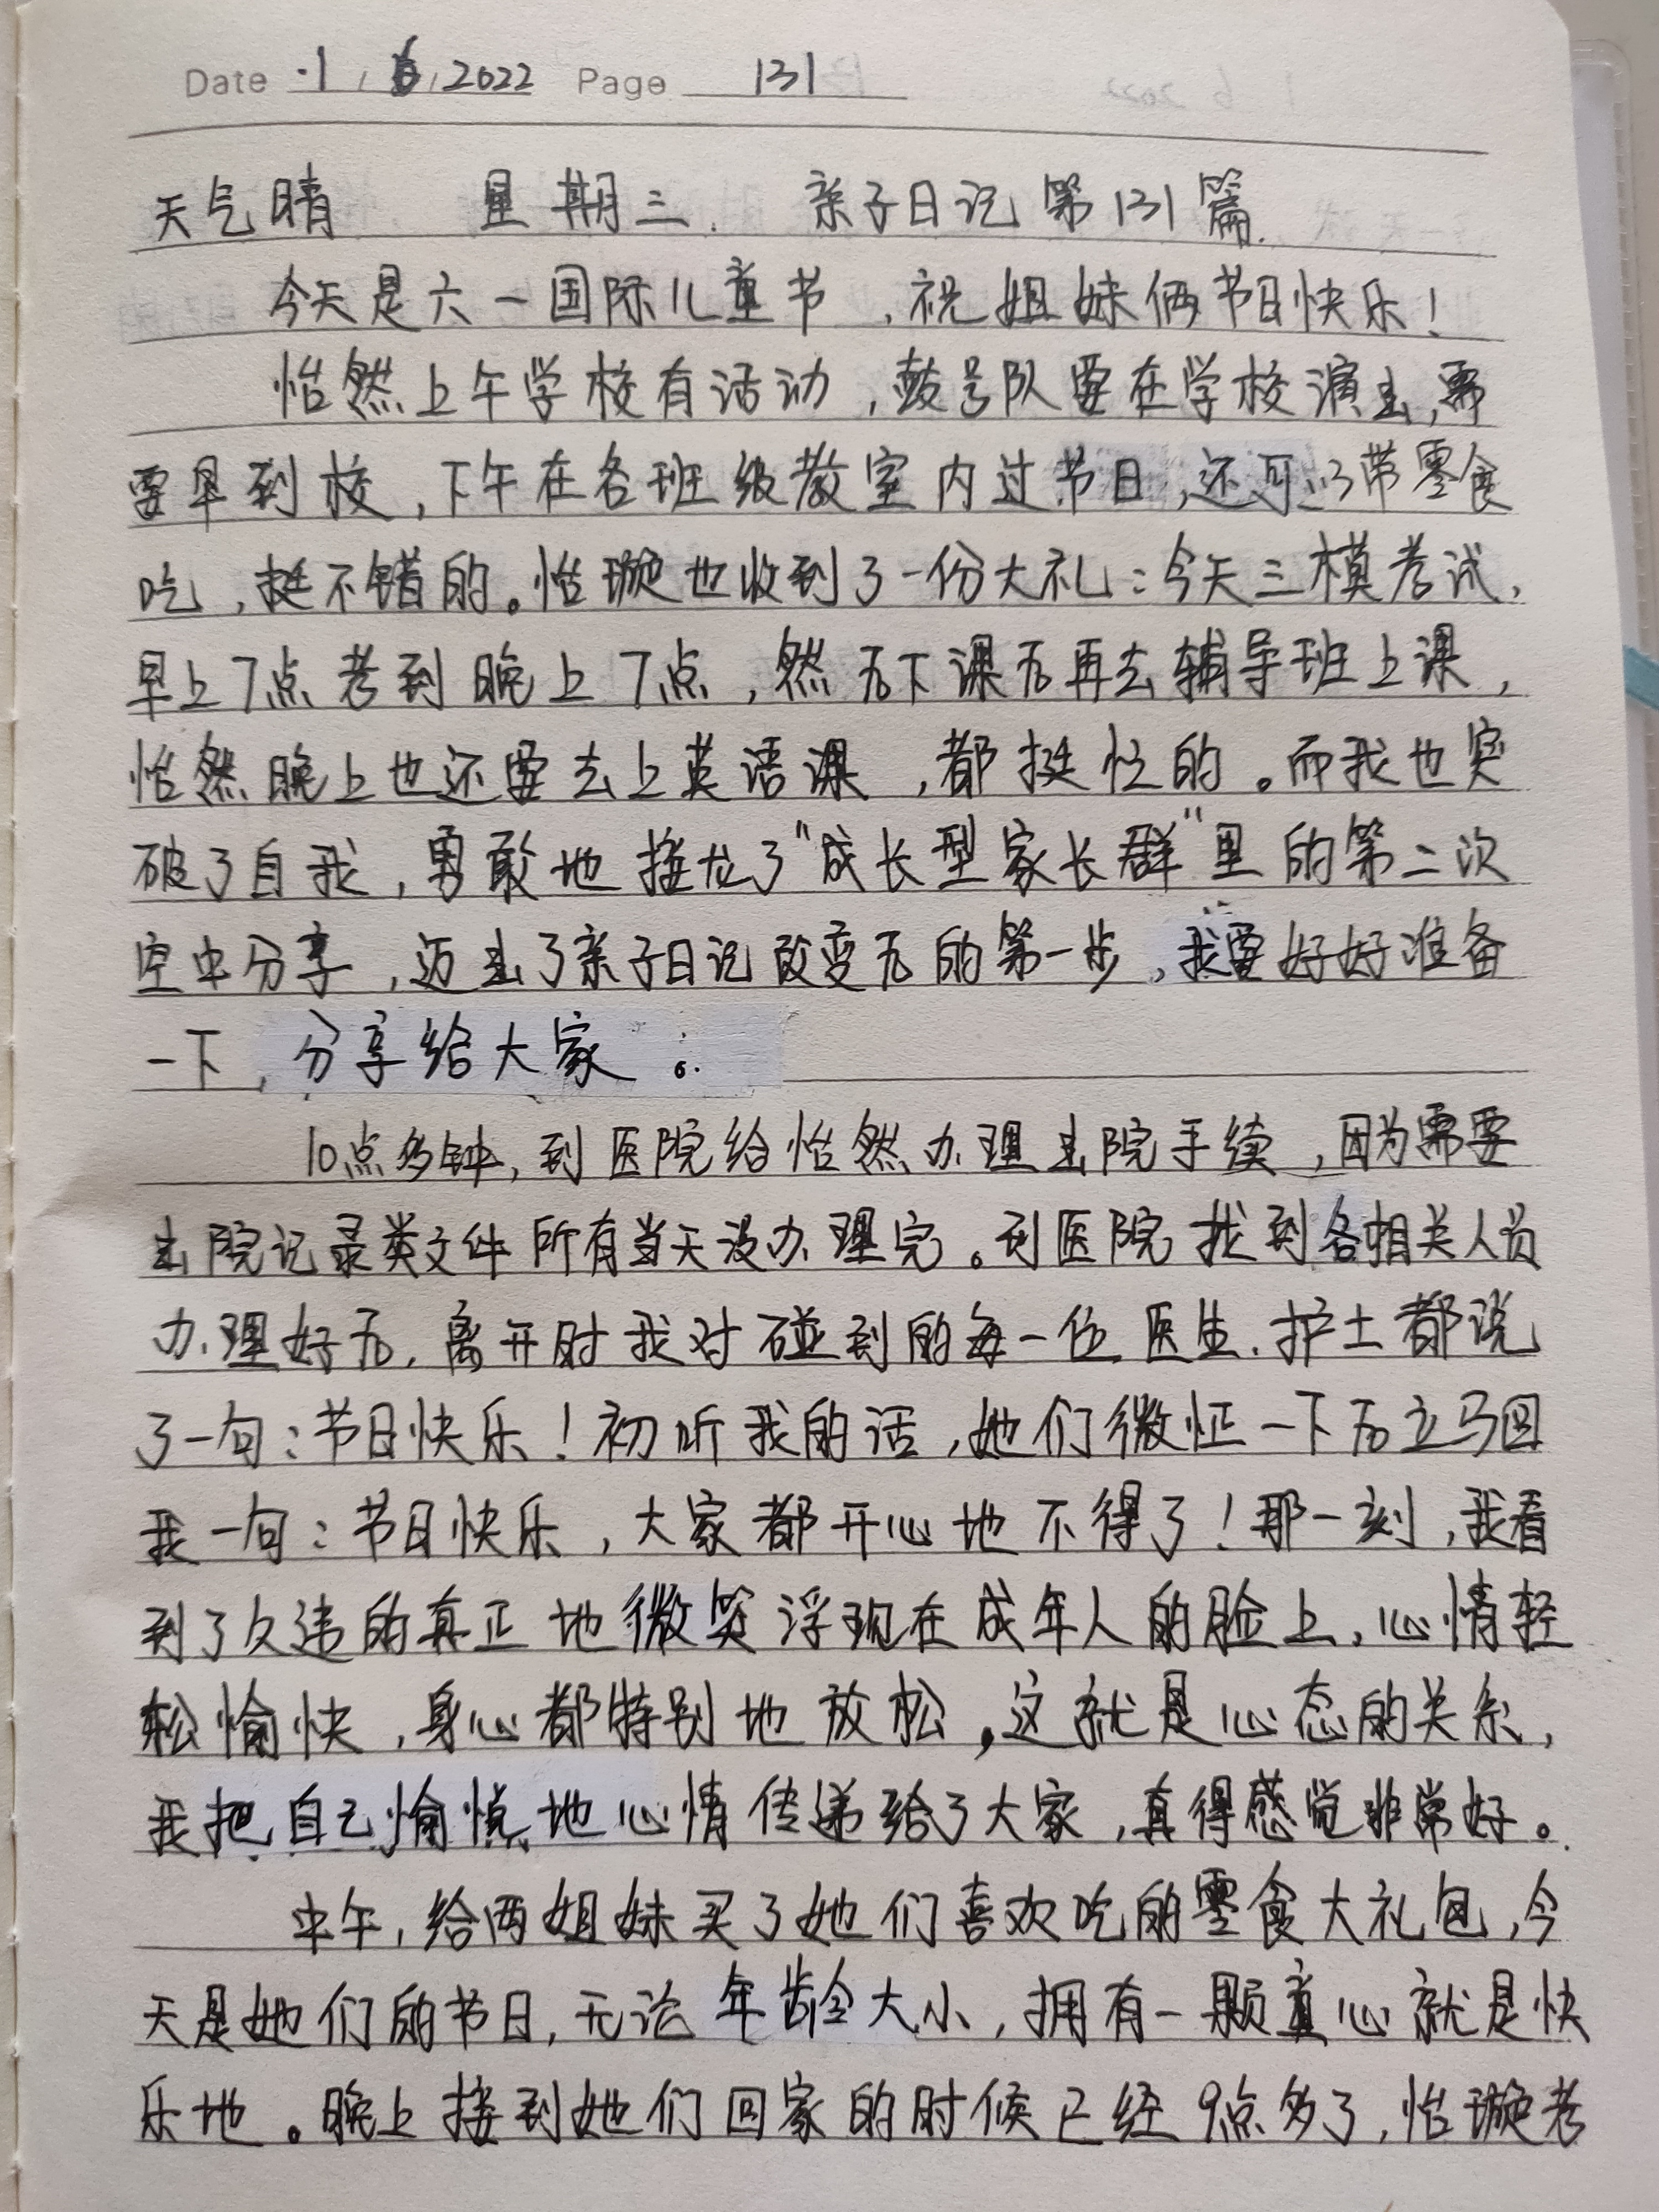 Date 1 / 6 / 2022 Page 131
天气晴 星期三. 亲子日记第131篇.
今天是六一国际儿童节,祝姐妹俩节日快乐!
怡然上午学校有活动,鼓号队要在学校演出,需
要早到校,下午在各班级教室内过节日,还可以带零食
吃,挺不错的。怡璇也收到了一份大礼:今天三模考试,
早上7点考到晚上7点,然后下课后再去辅导班上课,
怡然晚上也还要去上英语课,都挺忙的。而我也突
破了自我,勇敢地接龙了"成长型家长群"里的第二次
空中分享,迈出了亲子日记改变后的第一步,我要好好准备
一下,分享给大家。
10点多钟,到医院给怡然办理出院手续,因为需要
出院记录类文件所有当天没办理完。到医院找到各相关人员
办理好后,离开时我对碰到的每一位医生.护士都说
了一句:节日快乐!初听我的话,她们微怔一下后立马回
我一句:节日快乐,大家都开心地不得了!那一刻,我看
到了久违的真正地微笑浮现在成年人的脸上,心情轻
松愉快,身心都特别地放松,这就是心态的关系,
我把自己愉悦地心情传递给了大家,真得感觉非常好。
中午,给两姐妹买了她们喜欢吃的零食大礼包,今
天是她们的节日,无论年龄大小,拥有一颗童心就是快
乐地。晚上接到她们回家的时候已经9点多了,怡璇考